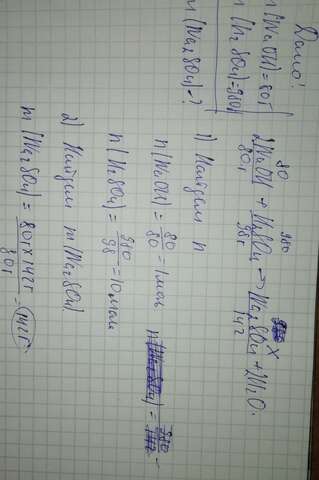 Дано:
m(NaOH)=80г
m(H₂SO₄)=980г
m(Na₂SO₄)-?
80 980 X
2NaOH + H₂SO₄ → Na₂SO₄ + 2H₂O.
80г 98г 142
1) Найдем n
n(NaOH) = 80/80 = 1 моль
n(H₂SO₄) = 980/98 = 10 моль
2) Найдем m(Na₂SO₄)
m(Na₂SO₄) = 80г x 142г / 80г = 142г